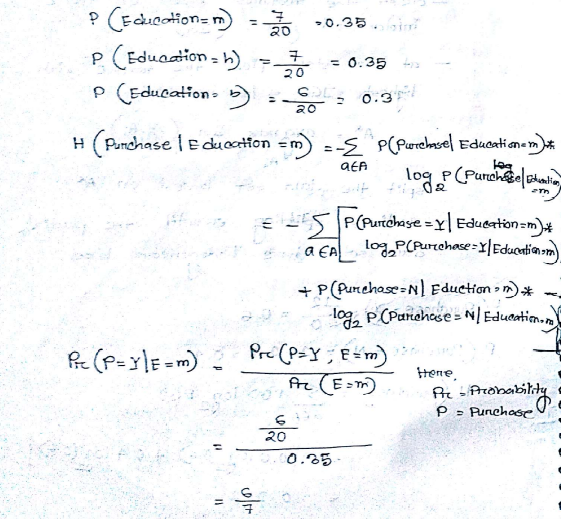 P (Education=m) = 7/20 = 0.35
P (Education = h) = 7/20 = 0.35
P (Education= b) = 6/20 = 0.3
H (Purchase | Education =m) = -∑ a∈A P(Purchase| Education=m)*
log₂ P (Purchase | Education =m)
= - ∑ a∈A [ P(Purchase=Y| Education=m)*
log₂ P(Purchase=Y|Education=m)
+ P(Purchase=N| Eduction=m)*
log₂ P(Purchase=N| Education=m)
Pr (P=Y|E=m) = Pr (P=Y, E=m) / Pr (E=m)
Here,
Pr = Probability
P = Purchase
= 6/20 / 0.35
= 6/7